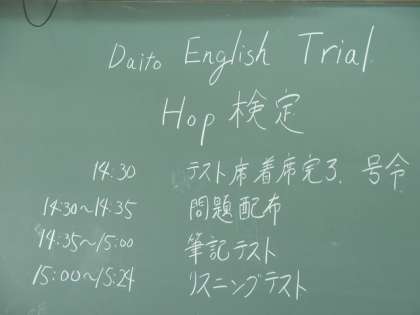 Daito English Trial
Hop 検定
14:30 テスト席着席完了. 号令
14:30~14:35 問題配布
14:35~15:00 筆記テスト
15:00~15:24 リスニングテスト